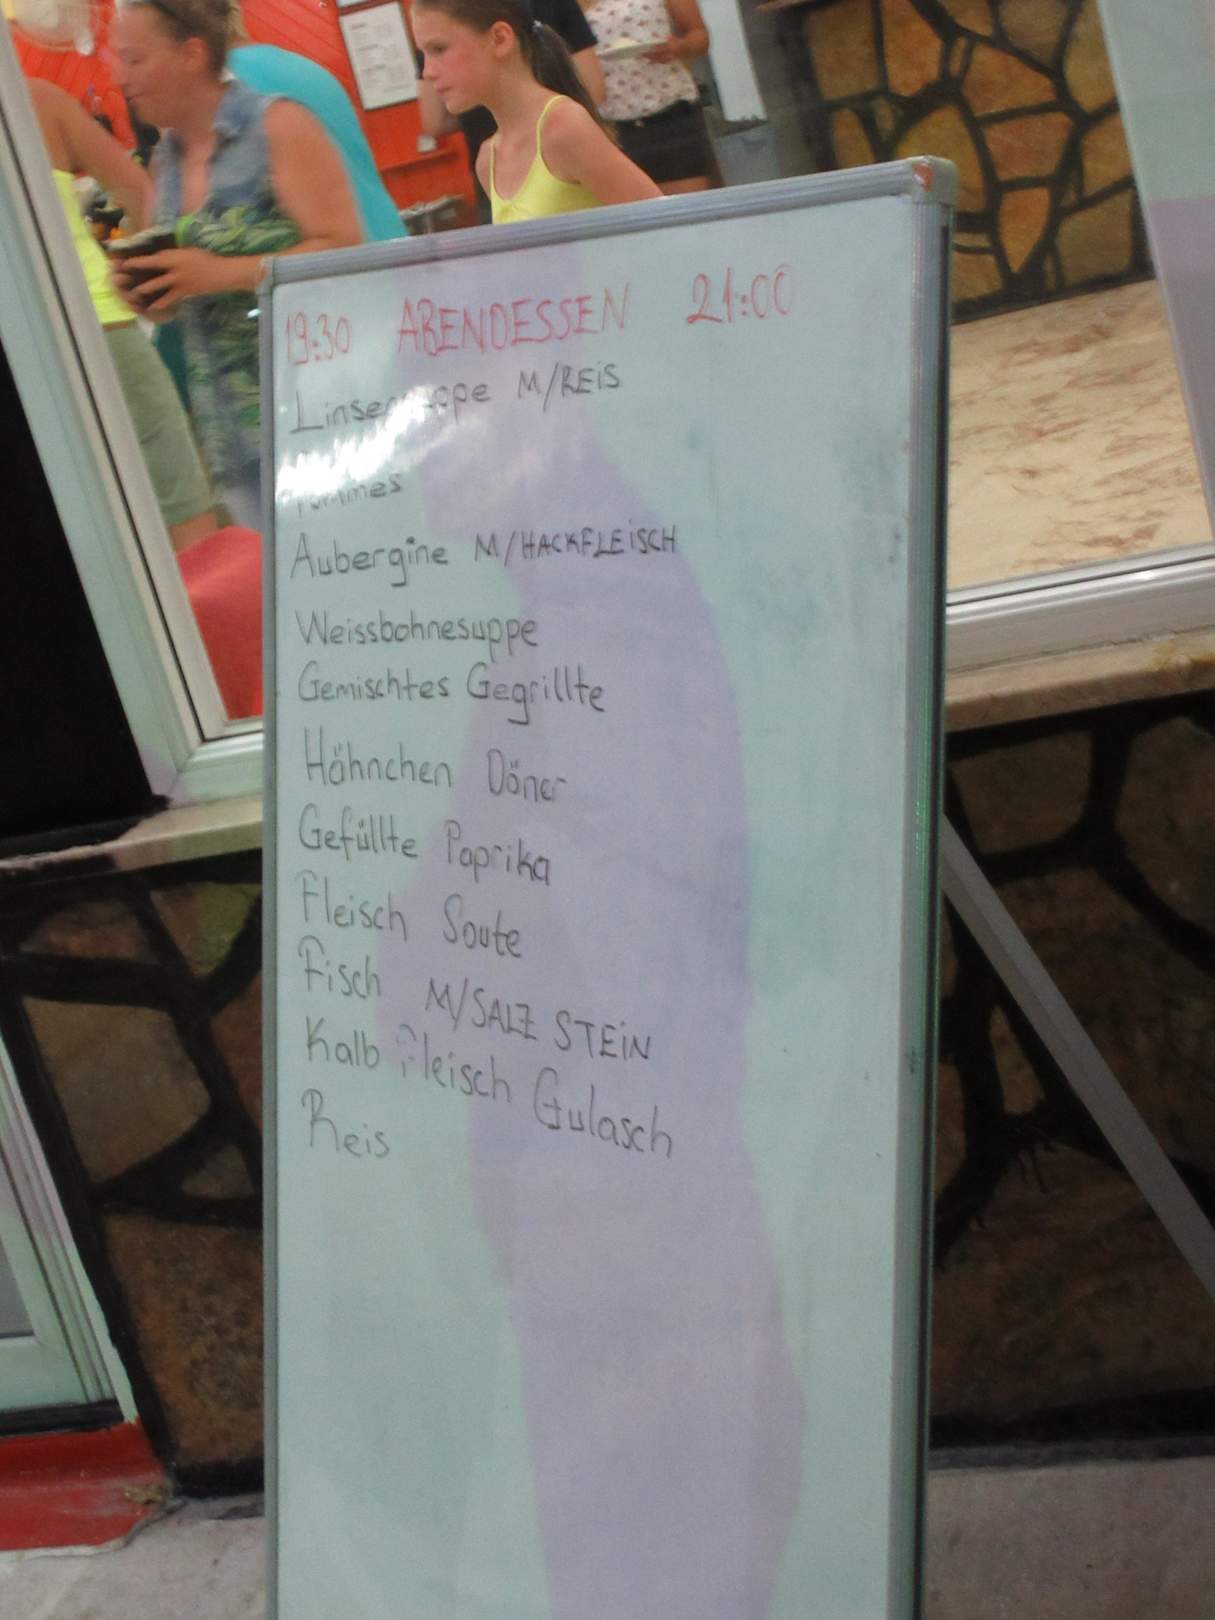 19:30 ABENDESSEN 21:00
Linsensuppe M/REIS
Pommes
Aubergine M/HACKFLEISCH
Weissbohnesuppe
Gemischtes Gegrillte
Hähnchen Döner
Gefüllte Paprika
Fleisch Soute
Fisch M/SALZ STEIN
Kalb fleisch Gulasch
Reis